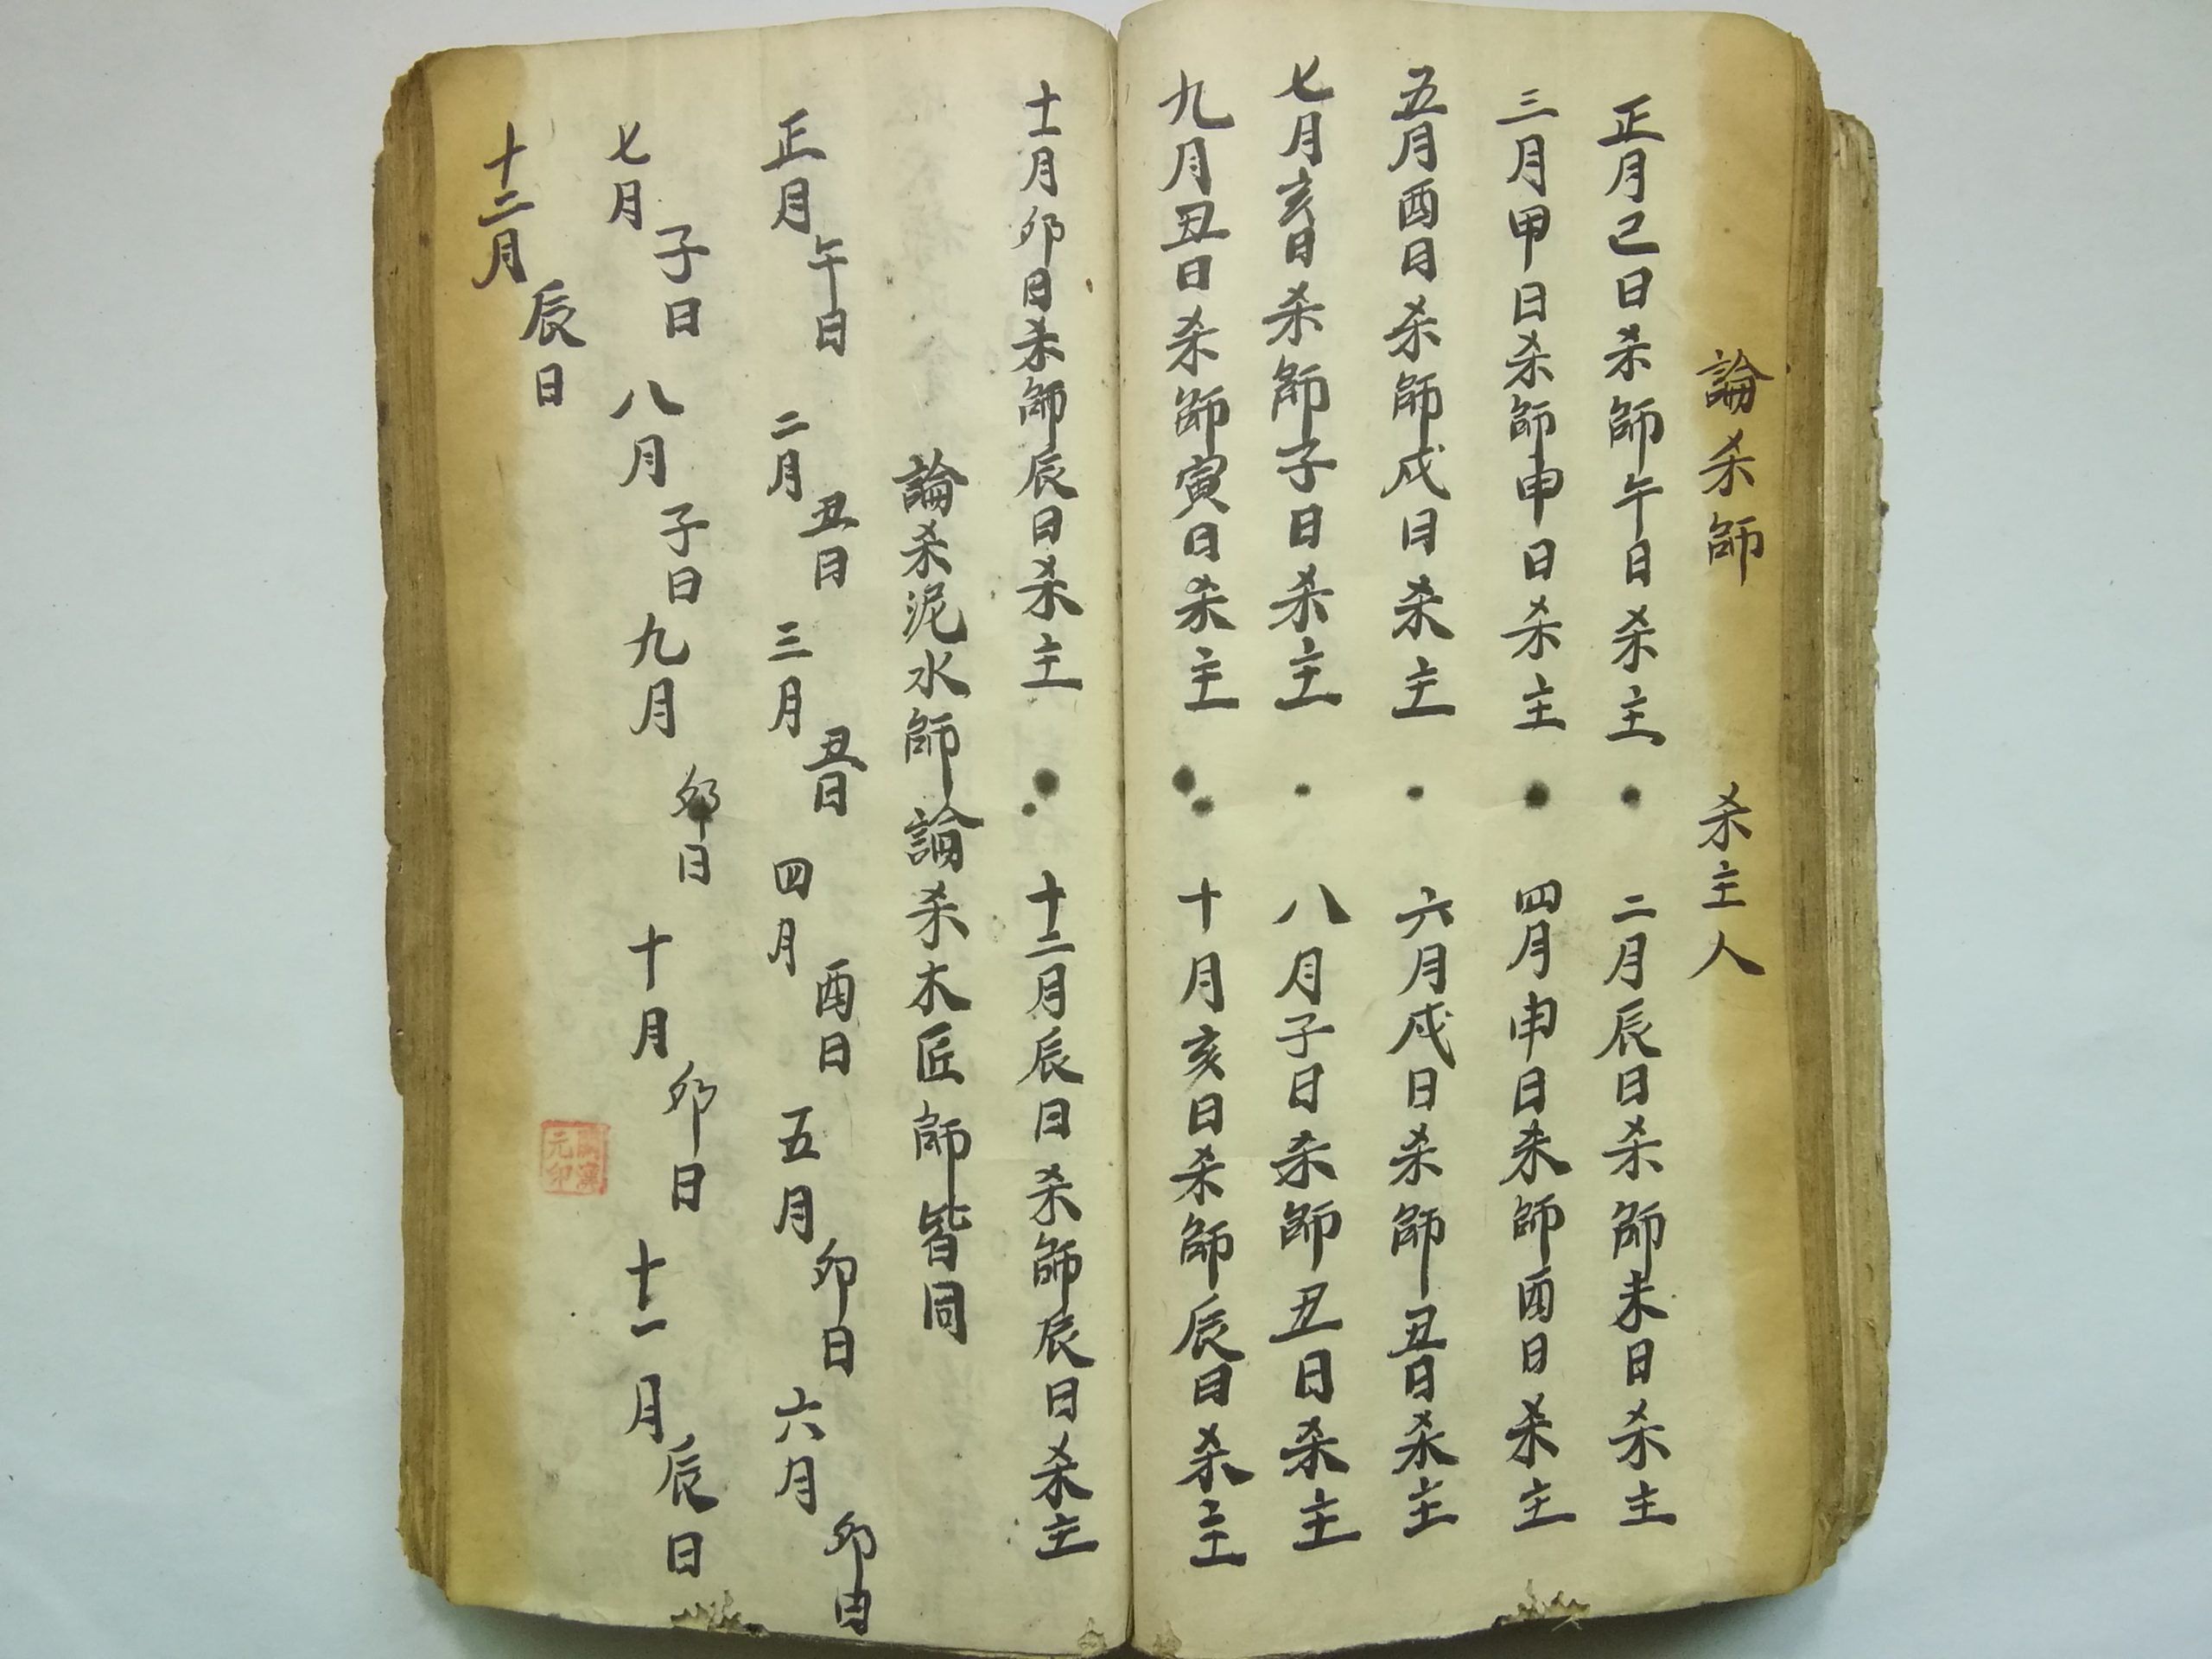 論杀師 杀主人
正月己日杀師午日杀主 二月辰日杀師未日杀主
三月甲日杀師申日杀主 四月申日杀師酉日杀主
五月酉日杀師戍日杀主 六月戍日杀師丑日杀主
七月亥日杀師子日杀主 八月子日杀師丑日杀主
九月丑日杀師寅日杀主 十月亥日杀師辰日杀主
十一月卯日杀師辰日杀主 十二月辰日杀師辰日杀主
論杀泥水師論杀木匠師皆同
正月午日 二月丑日 三月丑日 四月酉日 五月卯日 六月卯日
七月子日 八月子日 九月卯日 十月卯日 十一月辰日
十二月辰日
元印